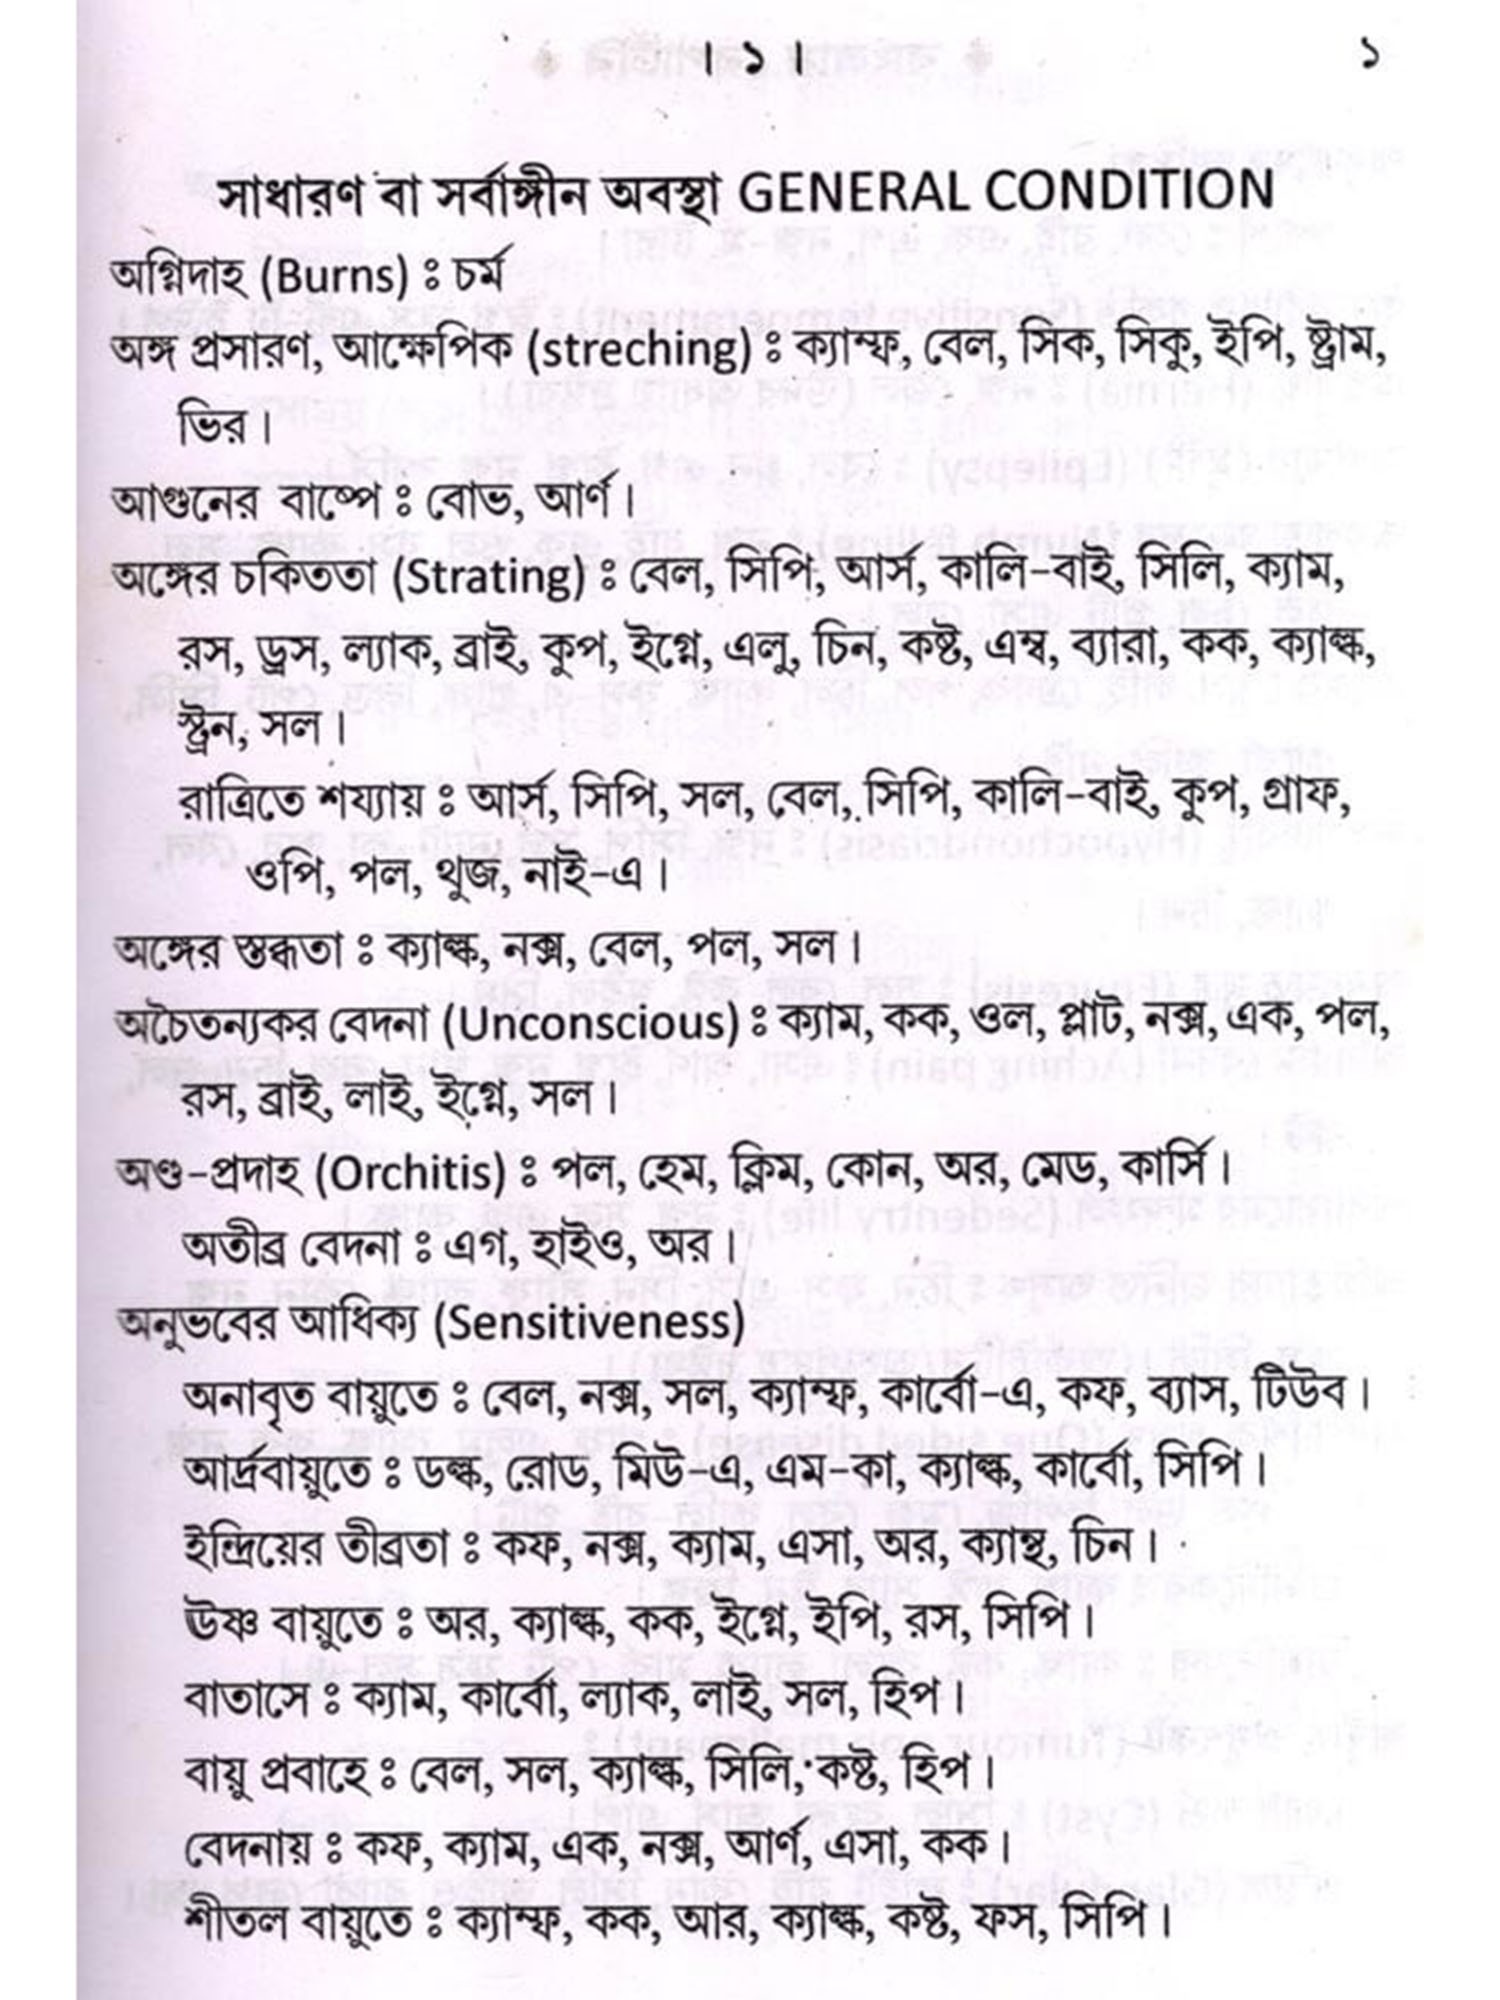 । ১ ।
১
সাধারণ বা সর্বাঙ্গীন অবস্থা GENERAL CONDITION
অগ্নিদাহ (Burns) ঃ চর্ম
অঙ্গ প্রসারণ, আক্ষেপিক (streching) ঃ ক্যাম্ফ, বেল, সিক, সিকু, ইপি, ষ্ট্রাম,
ভির।
আগুনের বাষ্পে ঃ বোভ, আর্ণ।
অঙ্গের চকিততা (Strating) ঃ বেল, সিপি, আর্স, কালি-বাই, সিলি, ক্যাম,
রস, ড্রস, ল্যাক, ব্রাই, কুপ, ইগ্নে, এলু, চিন, কষ্ট, এম্ব, ব্যারা, কক, ক্যাল্ক,
স্ট্রন, সল।
রাত্রিতে শয্যায় ঃ আর্স, সিপি, সল, বেল, সিপি, কালি-বাই, কুপ, গ্রাফ,
ওপি, পল, থুজ, নাই-এ।
অঙ্গের স্তব্ধতা ঃ ক্যাল্ক, নক্স, বেল, পল, সল।
অচৈতন্যকর বেদনা (Unconscious) ঃ ক্যাম, কক, ওল, প্লাট, নক্স, এক, পল,
রস, ব্রাই, লাই, ইগ্নে, সল।
অণ্ড-প্রদাহ (Orchitis) ঃ পল, হেম, ক্লিম, কোন, অর, মেড, কার্সি।
অতীব্র বেদনা ঃ এগ, হাইও, অর।
অনুভবের আধিক্য (Sensitiveness)
অনাবৃত বায়ুতে ঃ বেল, নক্স, সল, ক্যাম্ফ, কার্বো-এ, কফ, ব্যাস, টিউব।
আর্দ্রবায়ুতে ঃ ডল্ক, রোড, মিউ-এ, এম-কা, ক্যাল্ক, কার্বো, সিপি।
ইন্দ্রিয়ের তীব্রতা ঃ কফ, নক্স, ক্যাম, এসা, অর, ক্যান্থ, চিন।
ঊষ্ণ বায়ুতে ঃ অর, ক্যাল্ক, কক, ইগ্নে, ইপি, রস, সিপি।
বাতাসে ঃ ক্যাম, কার্বো, ল্যাক, লাই, সল, হিপ।
বায়ু প্রবাহে ঃ বেল, সল, ক্যাল্ক, সিলি, কষ্ট, হিপ।
বেদনায় ঃ কফ, ক্যাম, এক, নক্স, আর্ণ, এসা, কক।
শীতল বায়ুতে ঃ ক্যাম্ফ, কক, আর, ক্যাল্ক, কষ্ট, ফস, সিপি।